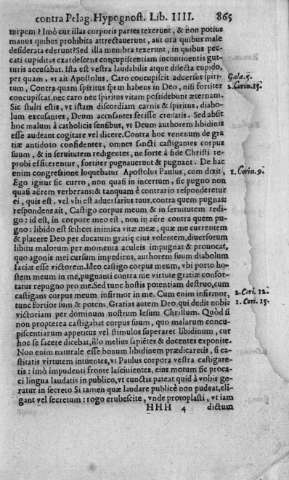 contra Pelag. Hypognost. Lib. IIII. 865
turpem? Imò cur illas corporis partes texerunt, & non potius
manus quibus prohibita attrectauerunt, aut ora quibus male
desiderata ederunt? Sed illa membra texerunt, in quibus pec-
cati cupiditas exardescens concupiscentiam incontinentis gut-
turis accusabat. Ista est vestra laudabilis atque dilecta cupido,
per quam, vt ait Apostolus, Caro concupiscit aduersus spiri-
tum, Contra quam spiritus spem habens in Deo, nisi fortiter
concupiscat, nec caro nec spiritus vitam possidebunt æternam.
Gala. 5.
1. Corin. 15.
Sic stulti estis, vt istam discordiam carnis & spiritus, diabo-
lum excusantes, Deum accusantes fecisse credatis. Sed absit
hoc malum à catholicis sensibus, vt Deum authorem libidinis
esse audeant cogitare vel dicere. Contra hoc venenum de gra-
tiæ antidoto confidentes, omnes sancti castigantes corpus
suum, & in seruitutem redigentes, ne forte à fide Christi re-
probi efficerentur, fortiter pugnauerunt & pugnant. De hac
enim congressione loquebatur Apostolus Paulus, cum dixit,
1. Corin. 9.
Ego igitur sic curro, non quasi in incertum, sic pugno non
quasi aërem verberans: & tanquam è contrario responderetur
ei, quis est, vel vbi est aduersarius tuus, contra quem pugnas?
respondens ait, Castigo corpus meum, & in seruitutem redi-
go: id est, in corpore meo est, non in aëre contra quem pu-
gno: libido est scilicet inimica vitæ meæ, quæ me currentem
& placere Deo per ducatum gratiæ eius volentem, diuersorum
libitu malorum per momenta aculeis impugnat & prouocat,
quo agonis mei cursum impediens, authorem suum diabolum
faciat esse victorem. Ideo castigo corpus meum, vbi porto ho-
stem meum in me, pugnansque contra me virtute gratiæ confor-
tatur repugno pro me. Sed tunc hostis potentiam destruo, cum
castigans corpus meum infirmor in me. Cum enim infirmor,
tunc fortior sum & potens. Gratias autem Deo, qui dedit nobis
2. Cori. 12.
1. Cori. 15.
victoriam per dominum nostrum Iesum Christum. Quòd si
non propterea castigabat corpus suum, quo malorum concu-
piscentiarum appetitus vel stimulos superaret libidinum, cur
hoc se facere dicebat, illo melius sapiētes & docentes exponite.
Non enim euitale esse bonum libidinem prædicaretis, si ca-
stitatis virtutem intuentes, vt Paulus corpora vestra castigare-
tis: imò impudenti fronte lasciuientes, eius motum sic proca-
ci lingua laudatis in publico, vt cunctis pateat quid à vobis ge-
ratur in secreto. Si tamen quæ laudare publicè non pudeat, eli-
gant vel secretum: rogo erubescite, vnde protoplasti, vt iam
HHH 4 dictum